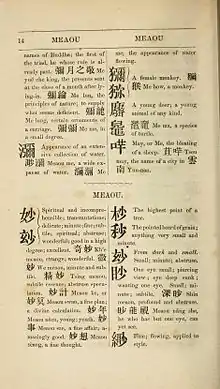 14 MEAOU
names of Buddha; the first of
the triad, he whose rule is al-
ready past. 彌月之敬 Me
yuě che king, the presents sent
at the close of a month after ly-
ing-in. 彌綸 Me lun, the
principles of nature; to supply
what seems deficient. 彌龍
Me lung, certain ornaments of
a carriage. 彌彌 Me me, in
a small degree.
瀰 Appearance of an exten-
sive collection of water.
渺瀰 Meaou me, a wide
expanse of water. 瀰瀰 Me
me, the appearance of water
flowing.
獼 A female monkey. 獼
猴 Me how, a monkey.
麛 A young deer; a young
animal of any kind.
Me mu, a species of
turtle.
May, or Me, the bleating
of a sheep. Tsoo
may, the name of a city in 雲南
Yun-nan.
MEAOU.
妙 Spiritual and incompre-
hensible; transmutations;
delicate; minute; subtile;
spiritual; abstruse;
wonderful; good in a high
degree; excellent. 奇妙 Ke
meaou, strange; wonderful. 微
妙 We meaou, minute and sub-
tile. 精妙 Tsing meaou,
subtile essence; abstruse specu-
lation. 妙計 Meaou ke, or
妙算 Meaou swan, a fine plan;
a divine calculation. 妙年
Meaou nëen, young; youth. 妙
事 Meaou sze, a fine affair; a-
mazingly good. 妙想 Meaou
seang, a fine thought.
杪 The highest point of a
tree.
秒 The pointed beard of grain;
any thing very small and
minute.
眇 From dark and small.
Small; minute; abstruse.
One eye small; piercing
view; eye deep sunk;
wanting one eye. Small; mi-
nute; subtile. 深眇 Shin
meaou, profound, or abstruse.
眇能視 Meaou năng she,
he who has but one eye, can
yet see.
緲 Fine; flowing, applied to
style.